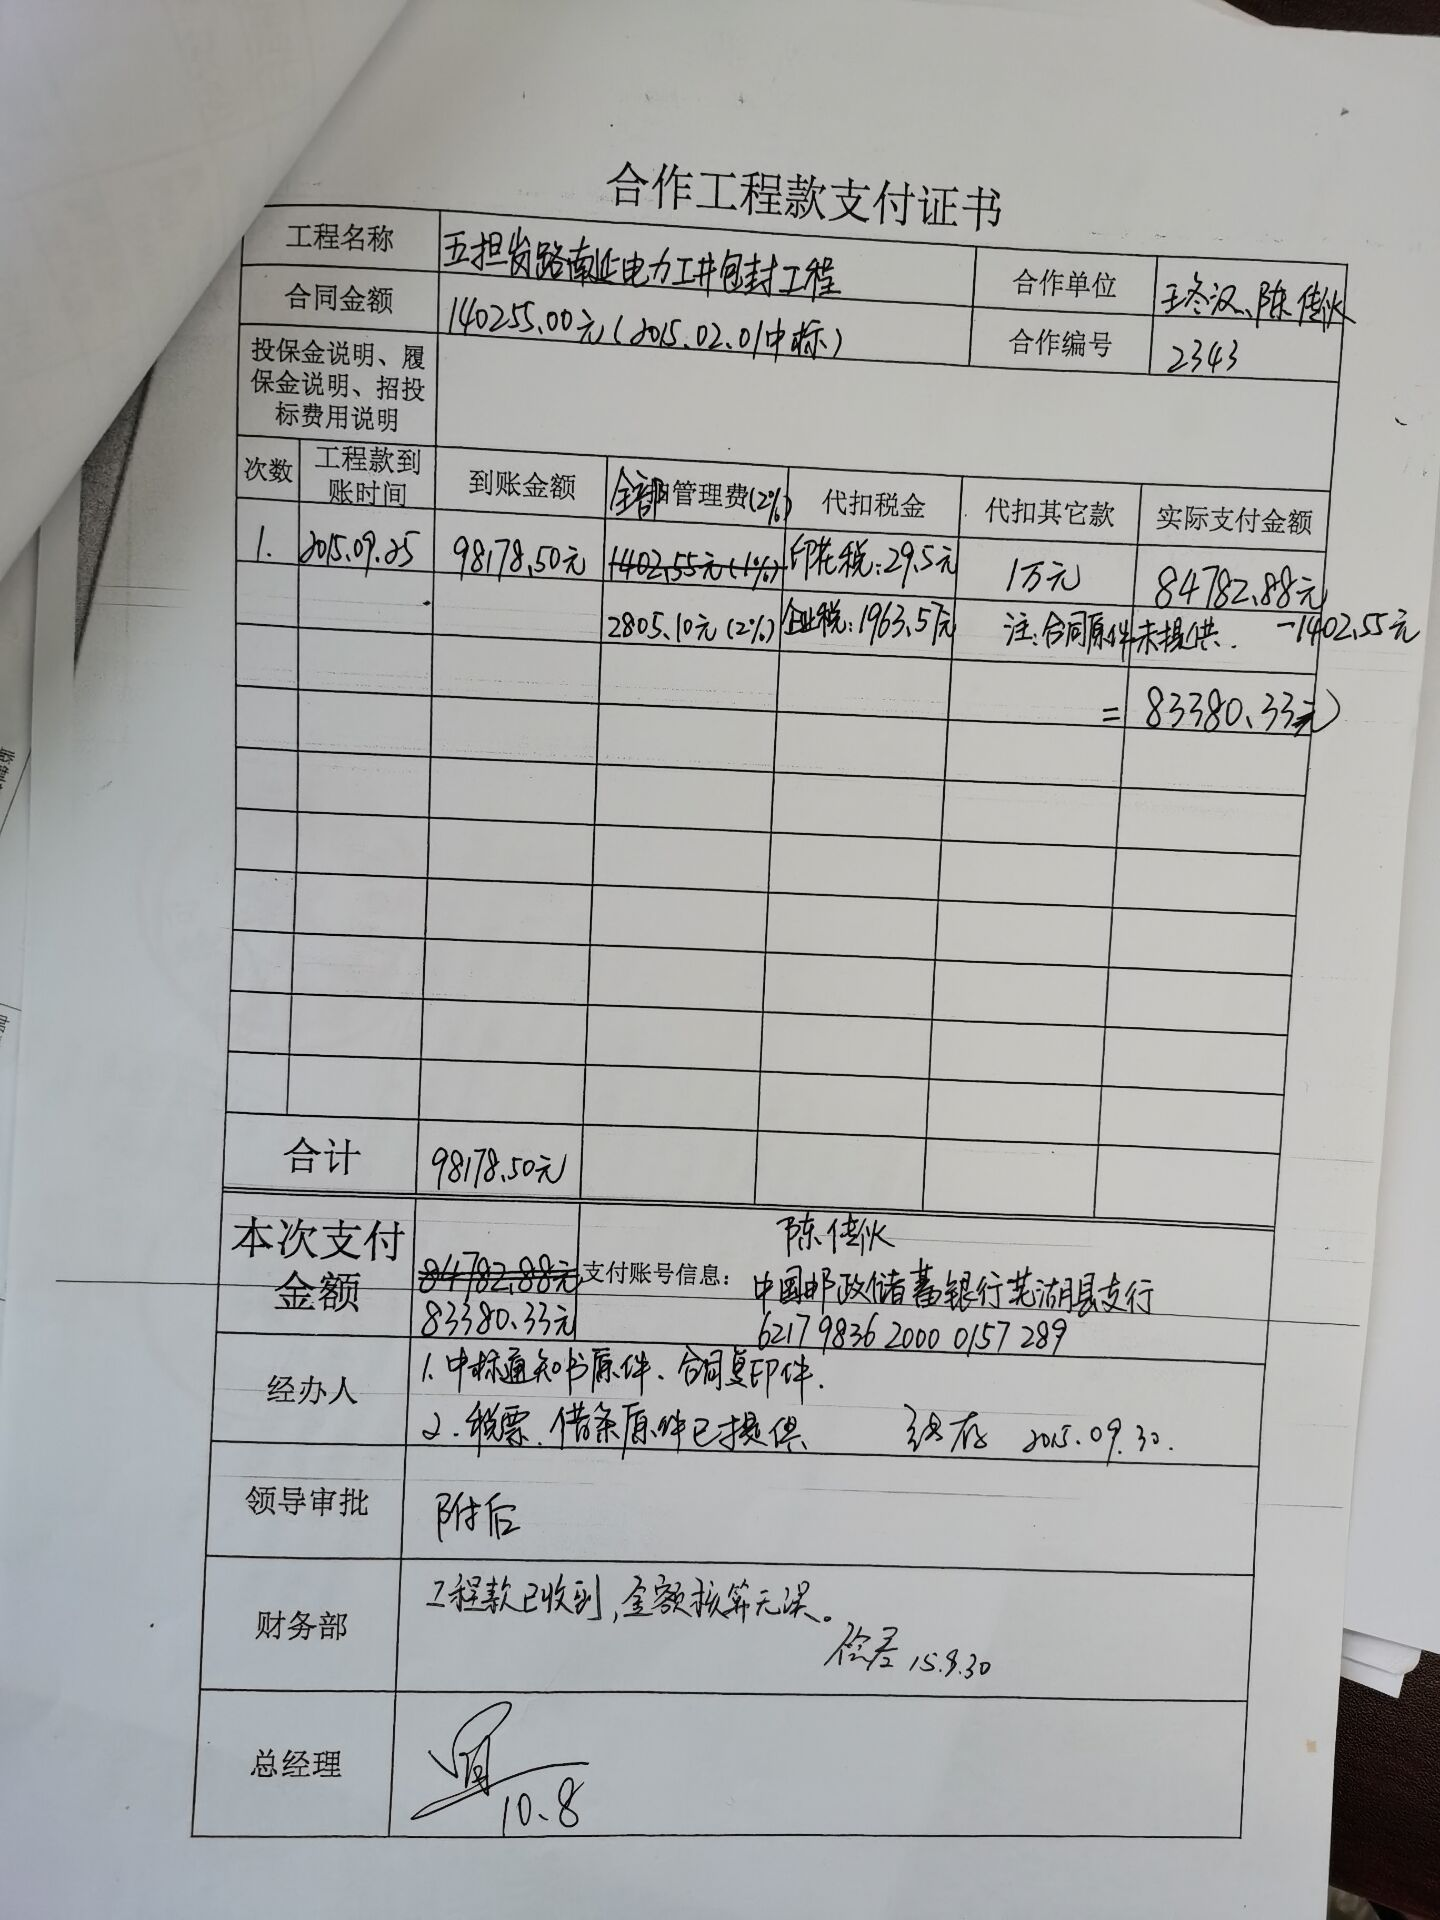 合作工程款支付证书
工程名称
五担岗路南延电力工井包封工程
合作单位
陈佳伙
合同金额
140255.00元(2015.02.01中标)
合作编号
2343
投保金说明、履
保金说明、招投
标费用说明
次数
工程款到
账时间
到账金额
全部管理费(2%)
代扣税金
代扣其它款
实际支付金额
1.
2015.09.25
98178.50元
1402.55元(1%)
印花税:29.5元
1万元
84782.88元
2805.10元(2%)
企业税:1963.57元
注:合同原件未提供.
-1402.55元
=83380.33元
合计
98178.50元
本次支付
金额
84782.88元
83380.33元
支付账号信息:
陈佳伙
中国邮政储蓄银行芜湖县支行
6217 9836 2000 0157 289
经办人
1.中标通知书原件、合同复印件.
2.税票、借条原件已提供
2015.09.30.
领导审批
附后
财务部
工程款已收到,金额核算无误。
15.9.30
总经理
10.8